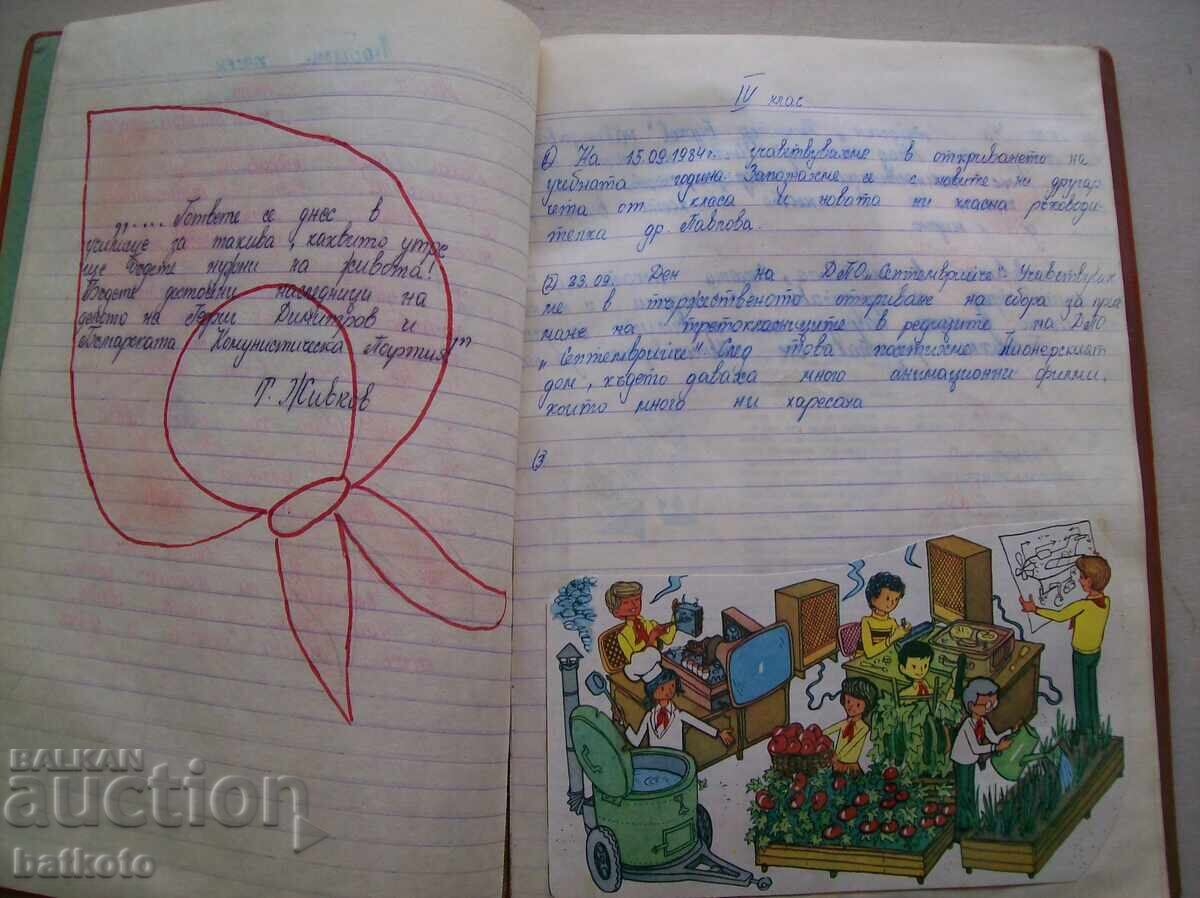 „..... Гответе се днес в
училище за такива, каквито утре
ще бъдете нужни на живота!
Бъдете достойни наследници на
делото на Георги Димитров и
Българската Комунистическа Партия!"
Т. Живков
IV клас
① На 15.09.1984г. учавствувахме в откриването на
учебната година. Запознахме се с новите ни другар
чета от класа и новата ни класна ръководи
телка др. Павлова.
② 23.09. Ден на ДПО„Септемврийче". Учавствувах
ме в тържественото откриване на сбора за прие
мане на третокласниците в редиците на ДПО
„Септемврийче". След това постихме Пионерският
дом, където даваха много анимационни филми,
които много ни харесаха
③
BALKAN
auction
batkoto